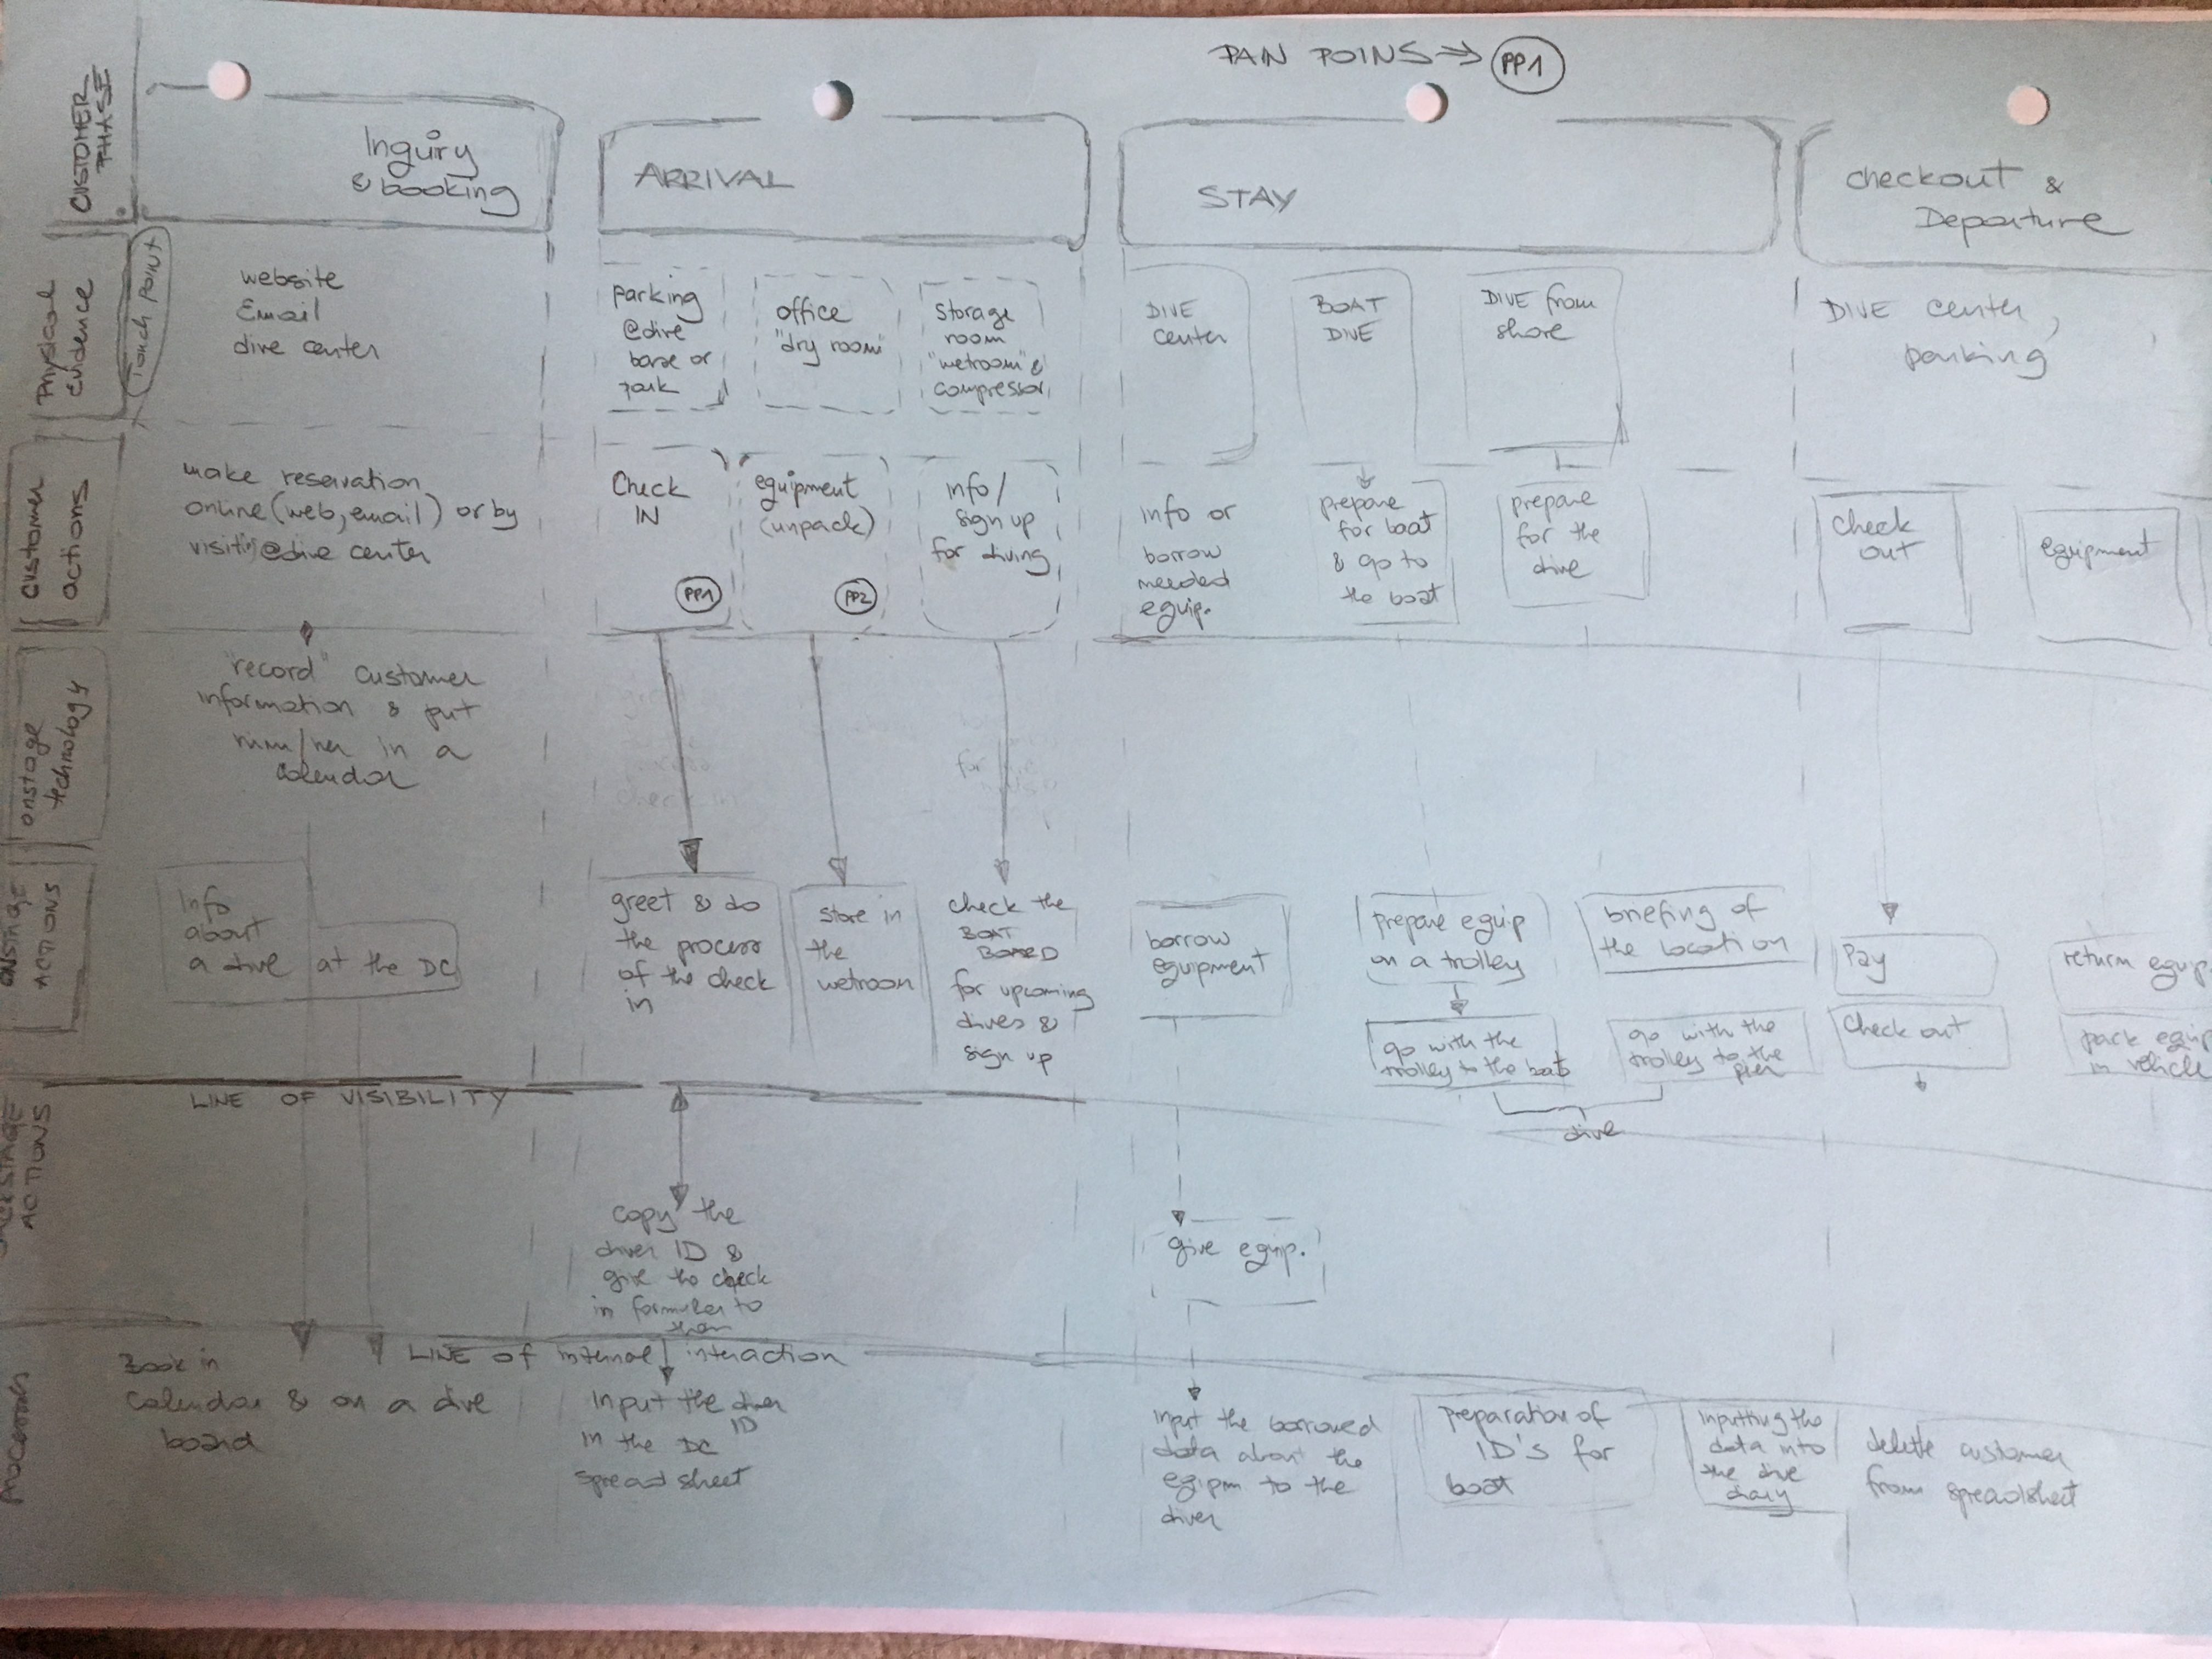 PAIN POINS → PP1
CUSTOMER
PHASE
Inquiry
& booking
ARRIVAL
STAY
checkout &
Departure
Physical
Evidence
Touch POINT
website
Email
dive center
parking
@dive
base or
park
office
"dry room"
storage
room
"wetroom" &
compressor
DIVE
center
BOAT
DIVE
DIVE from
shore
DIVE center,
parking
Customer
actions
make reservation
online (web, email) or by
visitin @dive center
Check
IN
PP1
equipment
(unpack)
PP2
info/
sign up
for diving
info or
borrow
needed
equip.
prepare
for boat
& go to
the boat
prepare
for the
dive
check
out
equipment
onstage
technology
"record" customer
information & put
him/her in a
calendar
check in
for
ONSTAGE
ACTIONS
Info
about
a dive
at the DC
greet & do
the process
of the check
in
store in
the
wetroom
check the
BOAT
BOARD
for upcoming
dives &
sign up
borrow
equipment
prepare equip
on a trolley
go with the
trolley to the boat
briefing of
the location
go with the
trolley to the
pier
dive
Pay
Check out
return equip
pack equip
in vehicle
LINE OF VISIBILITY
ACTIONS
copy the
diver ID &
give the check
in formular to
them
give equip.
LINE OF internal interaction
Processes
Book in
calendar & on a dive
board
input the diver
ID
in the DC
spreadsheet
input the borrowed
data about the
eqipm to the
diver
preparation of
ID's for
boat
inputting the
data into
the dive
diary
delete customer
from spreadsheet